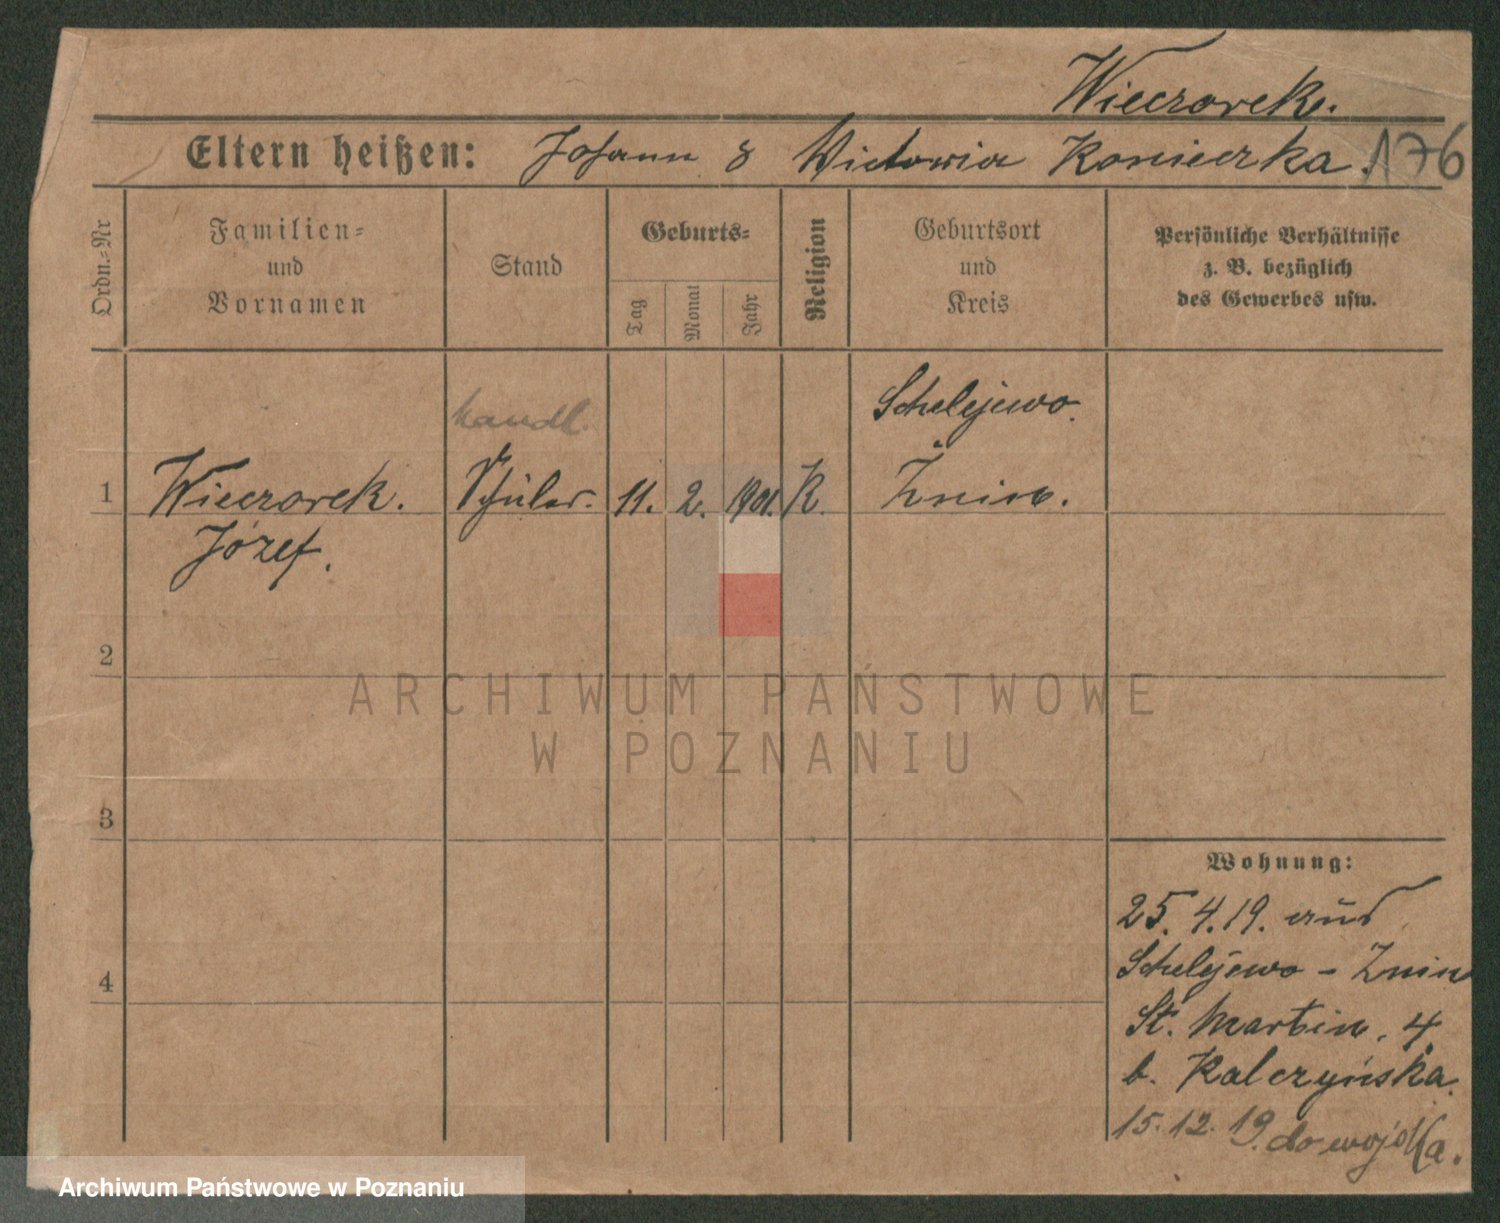 Wieczorek.
Eltern heißen: Johann & Victoria Konieczka. 176
Ordn.-Nr
Familien-
und
Vornamen
Stand
Geburts-
Tag
Monat
Jahr
Religion
Geburtsort
und
Kreis
Persönliche Verhältnisse
z. B. bezüglich
des Gewerbes usw.
handl.
Schelejewo.
1 Wieczorek. Schüler. 11. 2. 1901. K. Żnin.
Józef.
2
ARCHIWUM PAŃSTWOWE
W POZNANIU
3
Wohnung:
25. 4. 19. aus
Schelejewo - Znin
4
St. Martin. 4.
b. Kalczyńska.
15. 12. 19. do wojska.
Archiwum Państwowe w Poznaniu